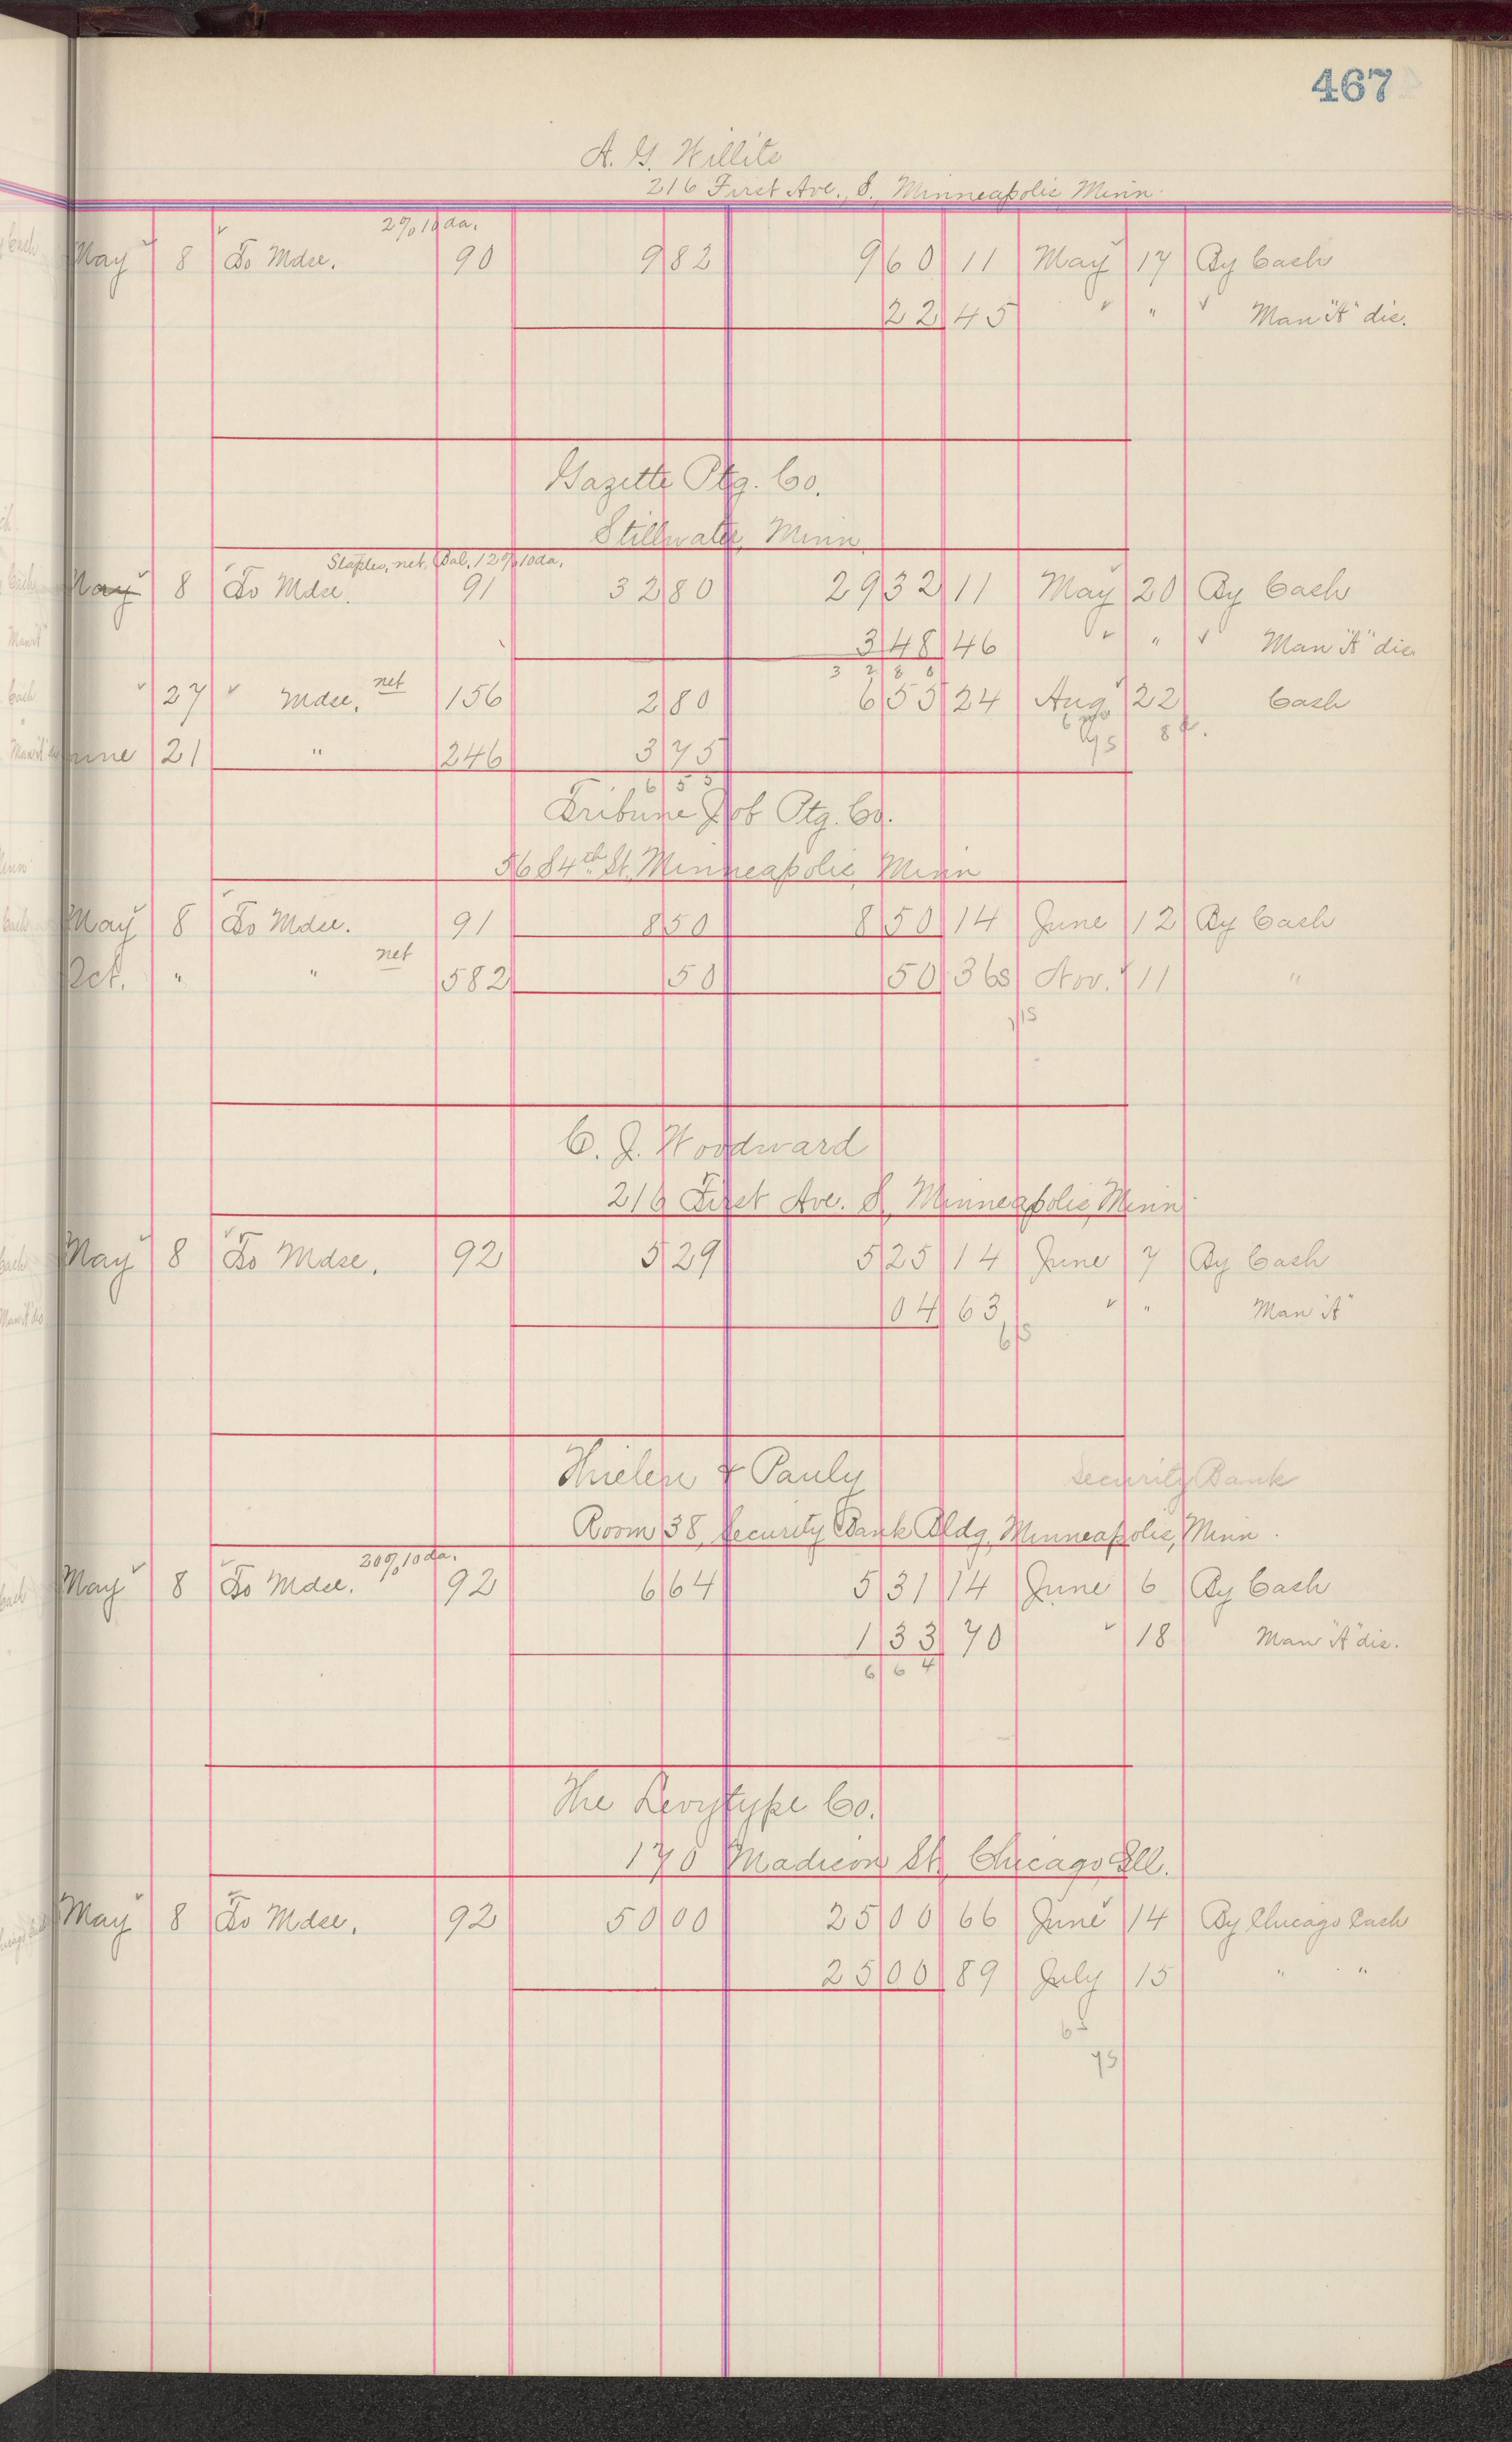 467
A. G. Willits
216 First Ave., S. Minneapolis Minn.
2% 10 da.
May 8 To Mdse. 90 982 960 11 May 17 By Cash
22 45 " " " Man "A" dis.
Gazette Ptg. Co.
Stillwater, Minn.
Staples, net, Bal. 12% 10 da.
May 8 To Mdse. 91 3280 2932 11 May 20 By Cash
348 46 " " " Man "A" dis.
3 2 8 0
" 27 " Mdse. net 156 280 655 24 Aug 22 Cash
June 21 " 246 375
6 5 5
Tribune Job Ptg. Co.
56 S 4th St. Minneapolis, Minn
May 8 To Mdse. 91 850 850 14 June 12 By Cash
net
Oct. " " 582 50 50 368 Nov. 11 "
C. J. Woodward
216 First Ave. S, Minneapolis, Minn.
May 8 To Mdse. 92 529 525 14 June 7 By Cash
04 63 " " Man "A"
Thielen & Pauly Security Bank
Room 38, Security Bank Bldg, Minneapolis, Minn.
20% 10 da.
May 8 To Mdse. 92 664 531 14 June 6 By Cash
133 70 " 18 Man "A" dis.
6 6 4
The Levytype Co.
170 Madison St. Chicago Ill.
May 8 To Mdse. 92 5000 2500 66 June 14 By Chicago Cash
2500 89 July 15 " "